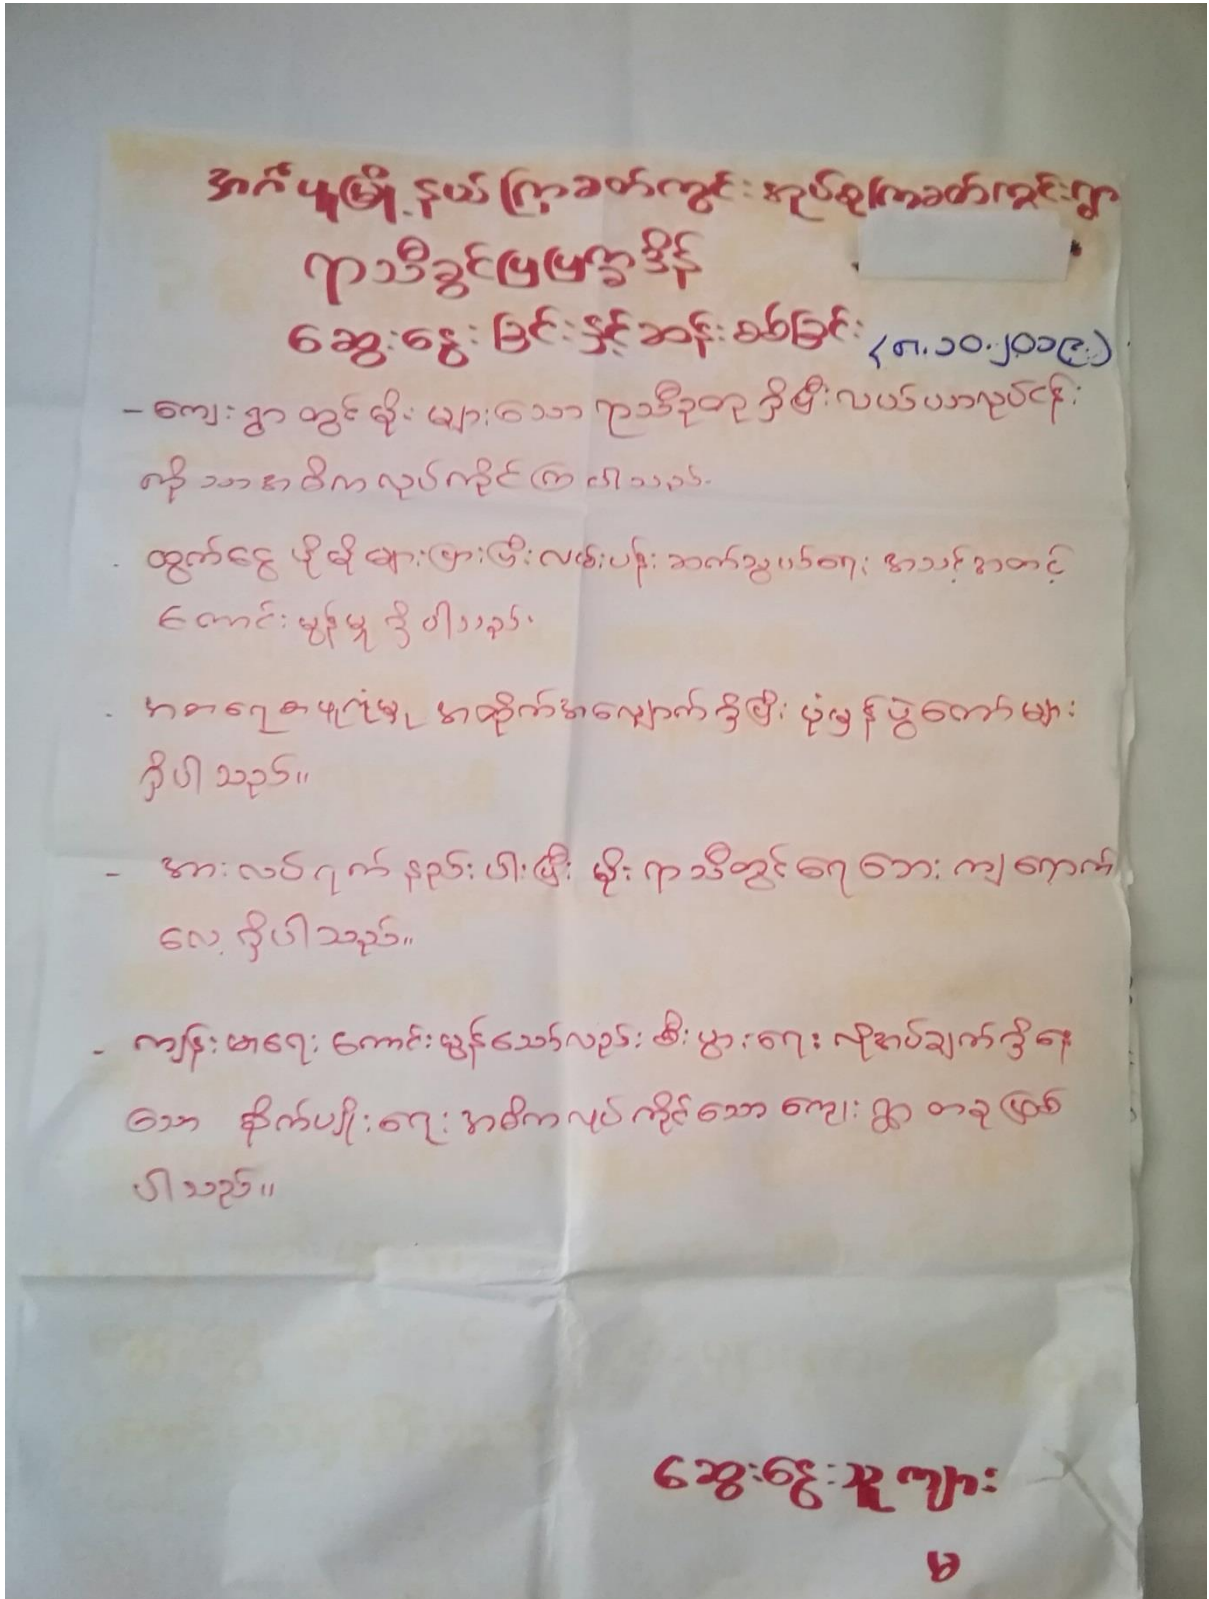 အင်္ဂပူမြို့နယ် ကြာ့ခတ်ကွင်းအုပ်စု ကြာ့ခတ်ကွင်းရွာ
ရာသီခွင်ပြပြက္ခဒိန်
ဆွေးနွေးခြင်းနှင့်ဆန်းစစ်ခြင်း (၈.၁၀.၂၀၁၉)
- ကျေးရွာတွင် မိုးများသော ရာသီဥတုရှိပြီး လယ်ယာလုပ်ငန်း
ကိုသာ အဓိကလုပ်ကိုင်ကြပါသည်.
. ထွက်ငွေ ပိုမိုများပြားပြီး လမ်းပန်းဆက်သွယ်ရေး အသင့်အတင့်
ကောင်းမွန်မှုရှိပါသည်.
. အစာရေစာ ဖူလုံမှု အထိုက်အလျောက်ရှိပြီး ပုံမှန်ပွဲတော်များ
ရှိပါသည်။
- အားလပ်ရက်နည်းပါးပြီး မိုးရာသီတွင် ရေဘေးကျရောက်
လေ့ရှိပါသည်။
- ကျန်းမာရေးကောင်းမွန်သော်လည်း စီးပွားရေးလိုအပ်ချက်ရှိနေ
သော စိုက်ပျိုးရေးအဓိကလုပ်ကိုင်သော ကျေးရွာတခုဖြစ်
ပါသည်။
ဆွေးနွေးသူများ